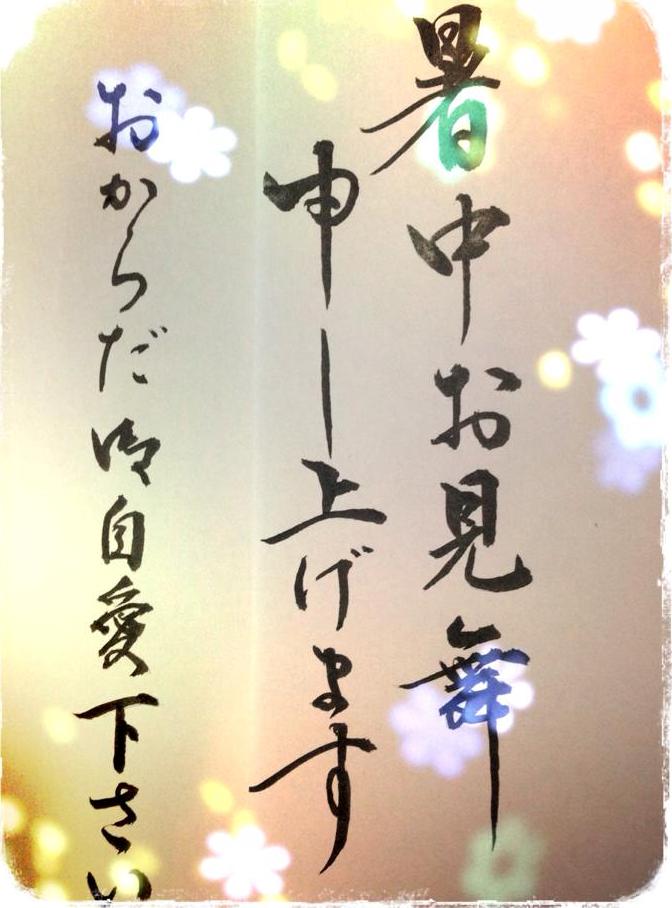 暑中お見舞
申し上げます
おからだ御自愛下さい